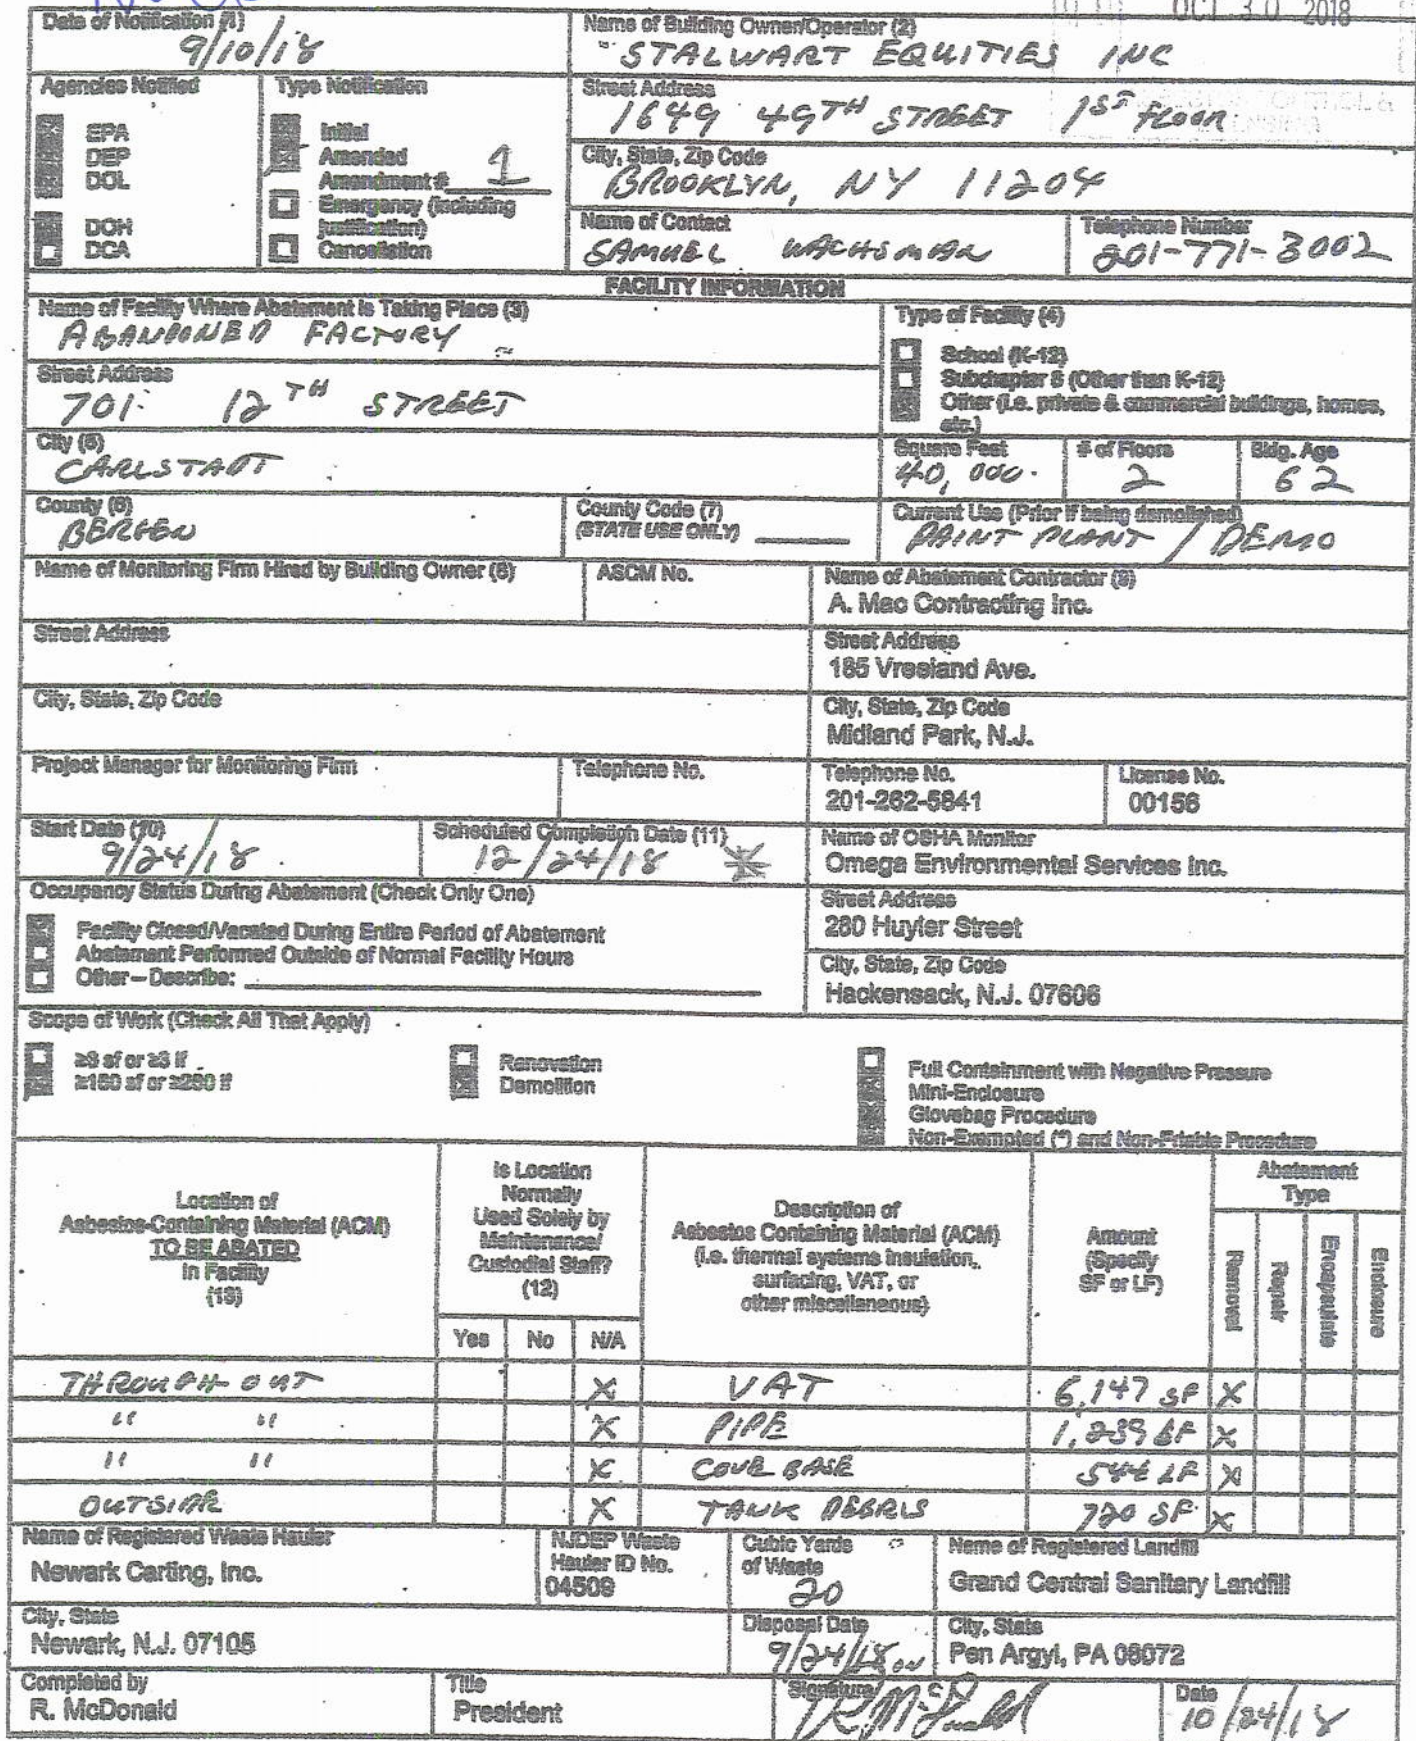 OCT 30 2018
Date of Notification (1)
9/10/18
Name of Building Owner/Operator (2)
STALWART EQUITIES INC
Agencies Notified
EPA
DEP
DOL
DOH
DCA
Type Notification
Initial
Amended
Amendment # 1
Emergency (including
justification)
Cancellation
Street Address
1649 49TH STREET 1ST FLOOR
City, State, Zip Code
BROOKLYN, NY 11204
Name of Contact
SAMUEL WACHSMAN
Telephone Number
201-771-3002
FACILITY INFORMATION
Name of Facility Where Abatement is Taking Place (3)
ABANDONED FACTORY
Type of Facility (4)
School (K-12)
Subchapter 8 (Other than K-12)
Other (i.e. private & commercial buildings, homes,
etc.)
Street Address
701 12TH STREET
City (5)
CARLSTADT
Square Feet
40,000
# of Floors
2
Bldg. Age
62
County (6)
BERGEN
County Code (7)
(STATE USE ONLY)
Current Use (Prior if being demolished)
PAINT PLANT / DEMO
Name of Monitoring Firm Hired by Building Owner (8)
ASCM No.
Name of Abatement Contractor (9)
A. Mac Contracting Inc.
Street Address
Street Address
185 Vreeland Ave.
City, State, Zip Code
City, State, Zip Code
Midland Park, N.J.
Project Manager for Monitoring Firm
Telephone No.
Telephone No.
201-262-5841
License No.
00156
Start Date (10)
9/24/18
Scheduled Completion Date (11)
12/24/18 *
Name of OSHA Monitor
Omega Environmental Services Inc.
Occupancy Status During Abatement (Check Only One)
Facility Closed/Vacated During Entire Period of Abatement
Abatement Performed Outside of Normal Facility Hours
Other – Describe:
Street Address
280 Huyler Street
City, State, Zip Code
Hackensack, N.J. 07606
Scope of Work (Check All That Apply)
≥3 sf or ≥3 lf
≥160 sf or ≥260 lf
Renovation
Demolition
Full Containment with Negative Pressure
Mini-Enclosure
Glovebag Procedure
Non-Exempted (*) and Non-Friable Procedure
Location of
Asbestos-Containing Material (ACM)
TO BE ABATED
in Facility
(13)
Is Location
Normally
Used Solely by
Maintenance/
Custodial Staff?
(12)
Yes No N/A
Description of
Asbestos Containing Material (ACM)
(i.e. thermal systems insulation,
surfacing, VAT, or
other miscellaneous)
Amount
(Specify
SF or LF)
Abatement
Type
Removal
Repair
Encapsulate
Enclosure
THROUGH-OUT X VAT 6,147 SF X
" " X PIPE 1,239 LF X
" " X COVE BASE 544 LF X
OUTSIDE X TANK DEBRIS 720 SF X
Name of Registered Waste Hauler
Newark Carting, Inc.
NJDEP Waste
Hauler ID No.
04509
Cubic Yards
of Waste
20
Name of Registered Landfill
Grand Central Sanitary Landfill
City, State
Newark, N.J. 07105
Disposal Date
9/24/18 on
City, State
Pen Argyl, PA 08072
Completed by
R. McDonald
Title
President
Signature
Date
10/24/18